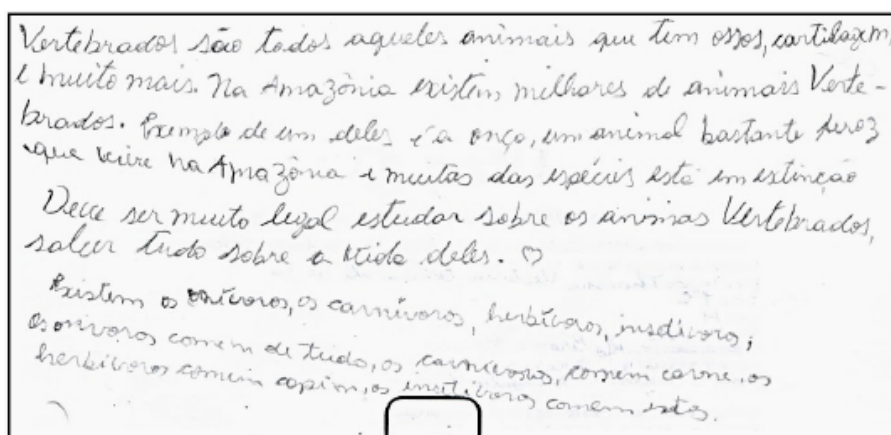 Vertebrados são todos aqueles animais que tem ossos, cartilagem,
e muito mais. Na Amazônia existem milhares de animais Verte-
brados. Exemplo de um deles é a onça, um animal bastante feroz
que vive na Amazônia e muitas das espécies está em extinção
Deve ser muito legal estudar sobre os animas Vertebrados,
saber tudo sobre a vida deles. ♡
Existem os onívoros, os carnívoros, herbívoros, insetívoros;
Os onívoros comem de tudo, os carnívoros, comem carne, os
herbívoros comem capim, os insetívoros comem